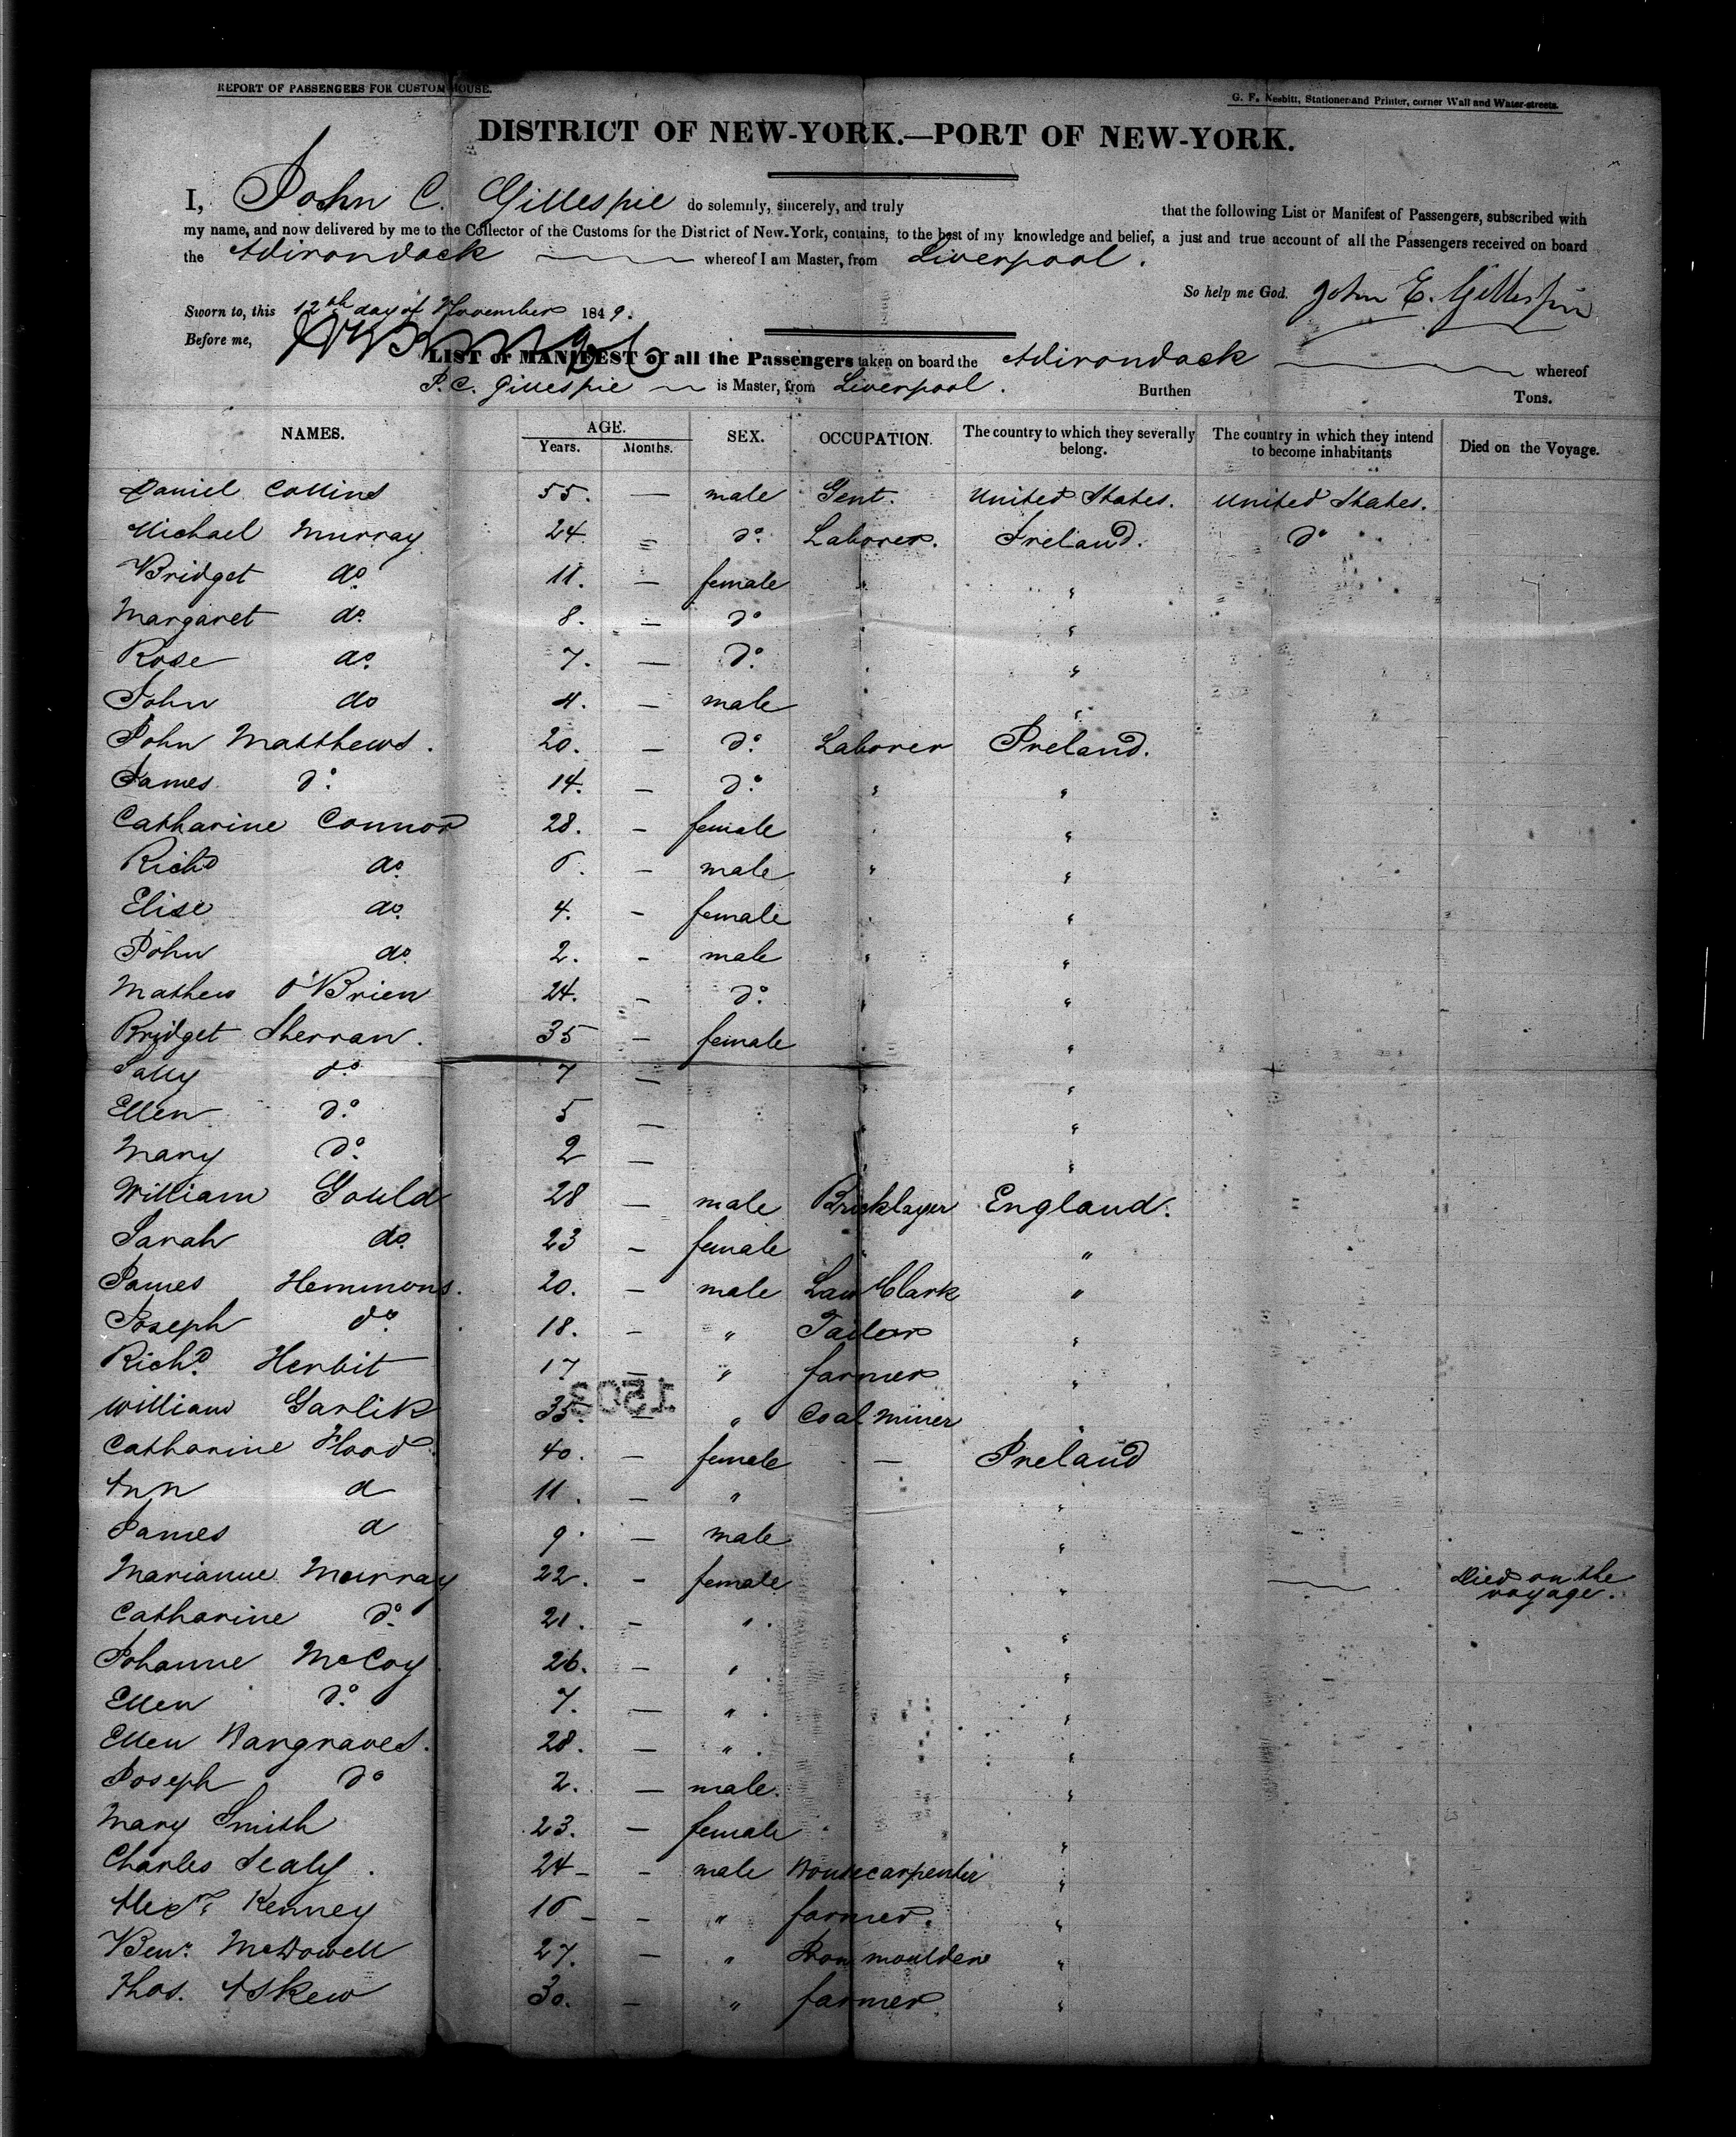 REPORT OF PASSENGERS FOR CUSTOM HOUSE.
G. F. Nesbitt, Stationer and Printer, corner Wall and Water-streets.
DISTRICT OF NEW-YORK.—PORT OF NEW-YORK.
I, John C. Gillespie do solemnly, sincerely, and truly that the following List or Manifest of Passengers, subscribed with
my name, and now delivered by me to the Collector of the Customs for the District of New-York, contains, to the best of my knowledge and belief, a just and true account of all the Passengers received on board
the Adirondack whereof I am Master, from Liverpool.
So help me God. John E. Gillespie
Sworn to, this 12th day of November 1849.
Before me,
LIST or MANIFEST of all the Passengers taken on board the Adirondack whereof
J. C. Gillespie is Master, from Liverpool. Burthen Tons.
NAMES. AGE. Years. Months. SEX. OCCUPATION. The country to which they severally belong. The country in which they intend to become inhabitants Died on the Voyage.
Daniel Collins 55. — male Gent. United States. United States.
Michael Murray 24 = do. Laborer. Ireland. do
Bridget do. 11. — female " "
Margaret do. 8. — do "
Rose do. 7. — do. "
John do 4. — male "
John Matthews. 20. — do. Laborer Ireland.
James do. 14. — do. " "
Catharine Connor 28. — female " "
Richd do. 6. — male " "
Elise do. 4. - female " "
John do. 2. - male " "
Mathew O'Brien 24. — do. " "
Bridget Sherran. 35 — female " "
Sally do. 7 — " "
Ellen do. 5 — " "
Mary do. 2 — " "
William Gould 28 — male Bricklayer England.
Sarah do. 23 — female " "
James Hemmons. 20. — male Law Clark "
Joseph do. 18. — " Tailor "
Richd. Herbit 17 — " farmer "
William Garlik 35. — " Coal Miner "
Catharine Flood. 40. — female — Ireland
Ann d 11. — " "
James d 9. — male "
Marianne Murray 22. - female " Died on the voyage.
Catharine do. 21. — " "
Johanne McCoy 26. — " "
Ellen do. 7. — " "
Ellen Hargraves. 28. — " "
Joseph do 2. — male. "
Mary Smith 23. — female "
Charles Sealy. 24 — - male Housecarpenter "
Alexr. Kenney 16 — - " farmer. "
Benn. McDowell 27. — " Iron moulder "
Thos. Askew 30. — " farmer. "
1503